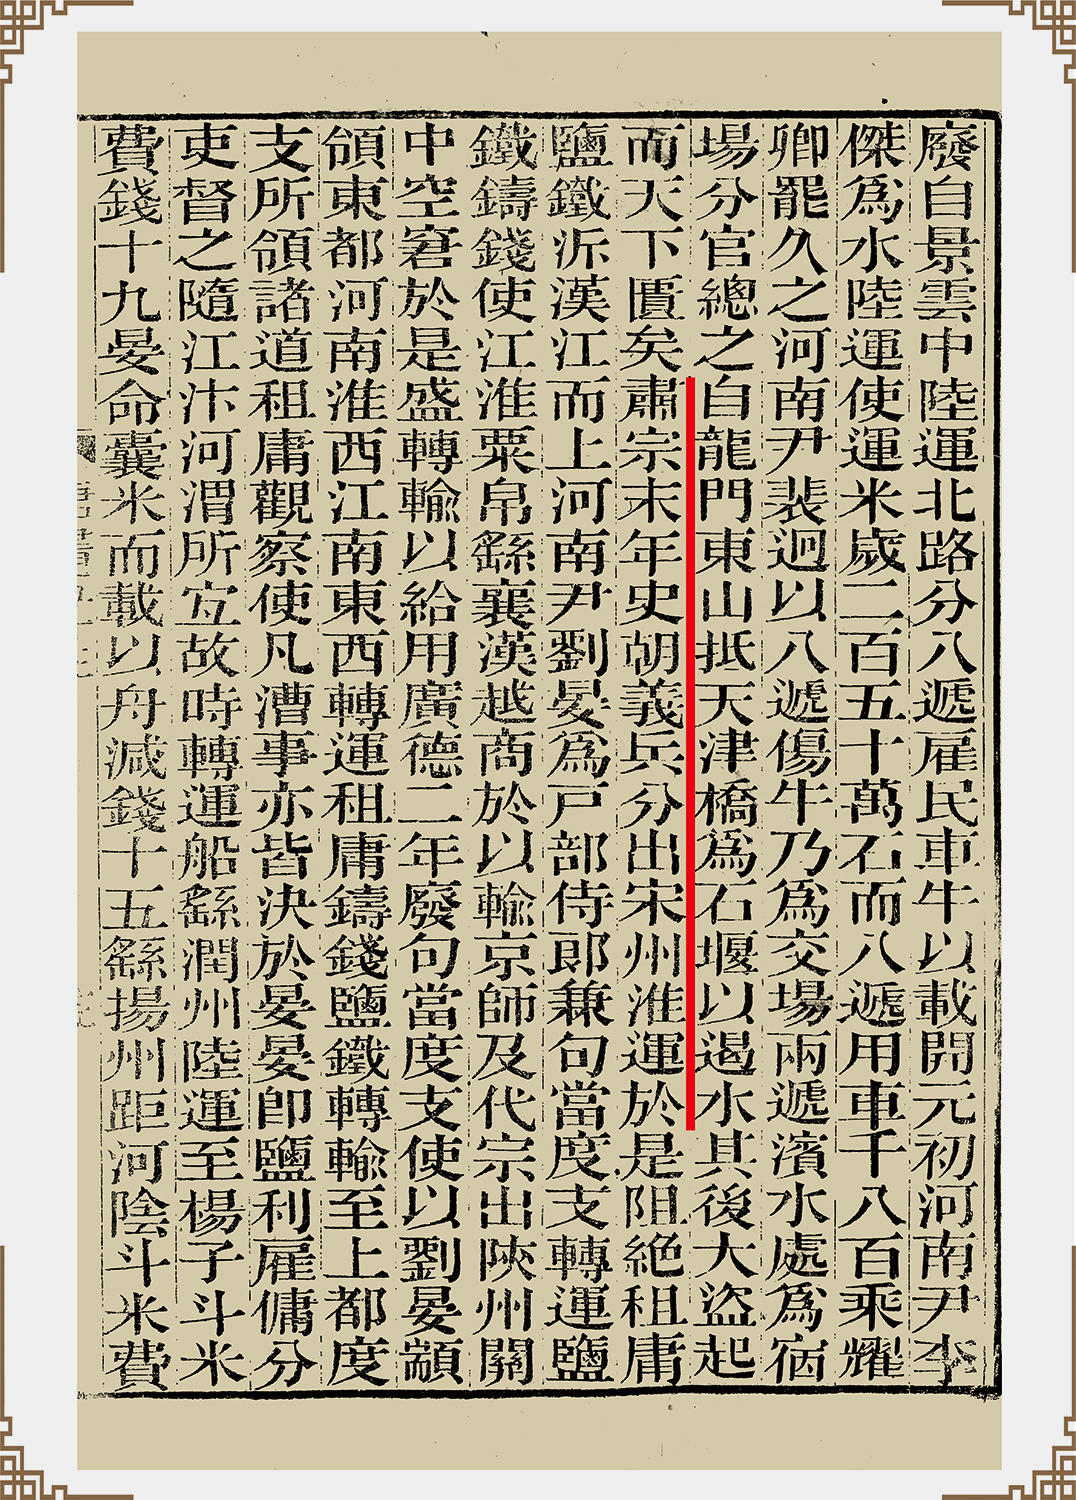 廢自景雲中陸運北路分八遞雇民車牛以載開元初河南尹李
傑爲水陸運使運米歲二百五十萬石而八遞用車千八百乘耀
卿罷久之河南尹裴迥以八遞傷牛乃爲交場兩遞濱水處爲宿
場分官總之自龍門東山抵天津橋爲石堰以遏水其後大盜起
而天下匱矣肅宗末年史朝義兵分出宋州淮運於是阻絕租庸
鹽鐵泝漢江而上河南尹劉晏爲戶部侍郎兼句當度支轉運鹽
鐵鑄錢使江淮粟帛繇襄漢越商於以輸京師及代宗出陝州關
中空窘於是盛轉輸以給用廣德二年廢句當度支使以劉晏顓
領東都河南淮西江南東西轉運租庸鑄錢鹽鐵轉輸至上都度
支所領諸道租庸觀察使凡漕事亦皆決於晏晏卽鹽利雇傭分
吏督之隨江汴河渭所宜故時轉運船繇潤州陸運至楊子斗米
費錢十九晏命囊米而載以舟減錢十五繇揚州距河陰斗米費